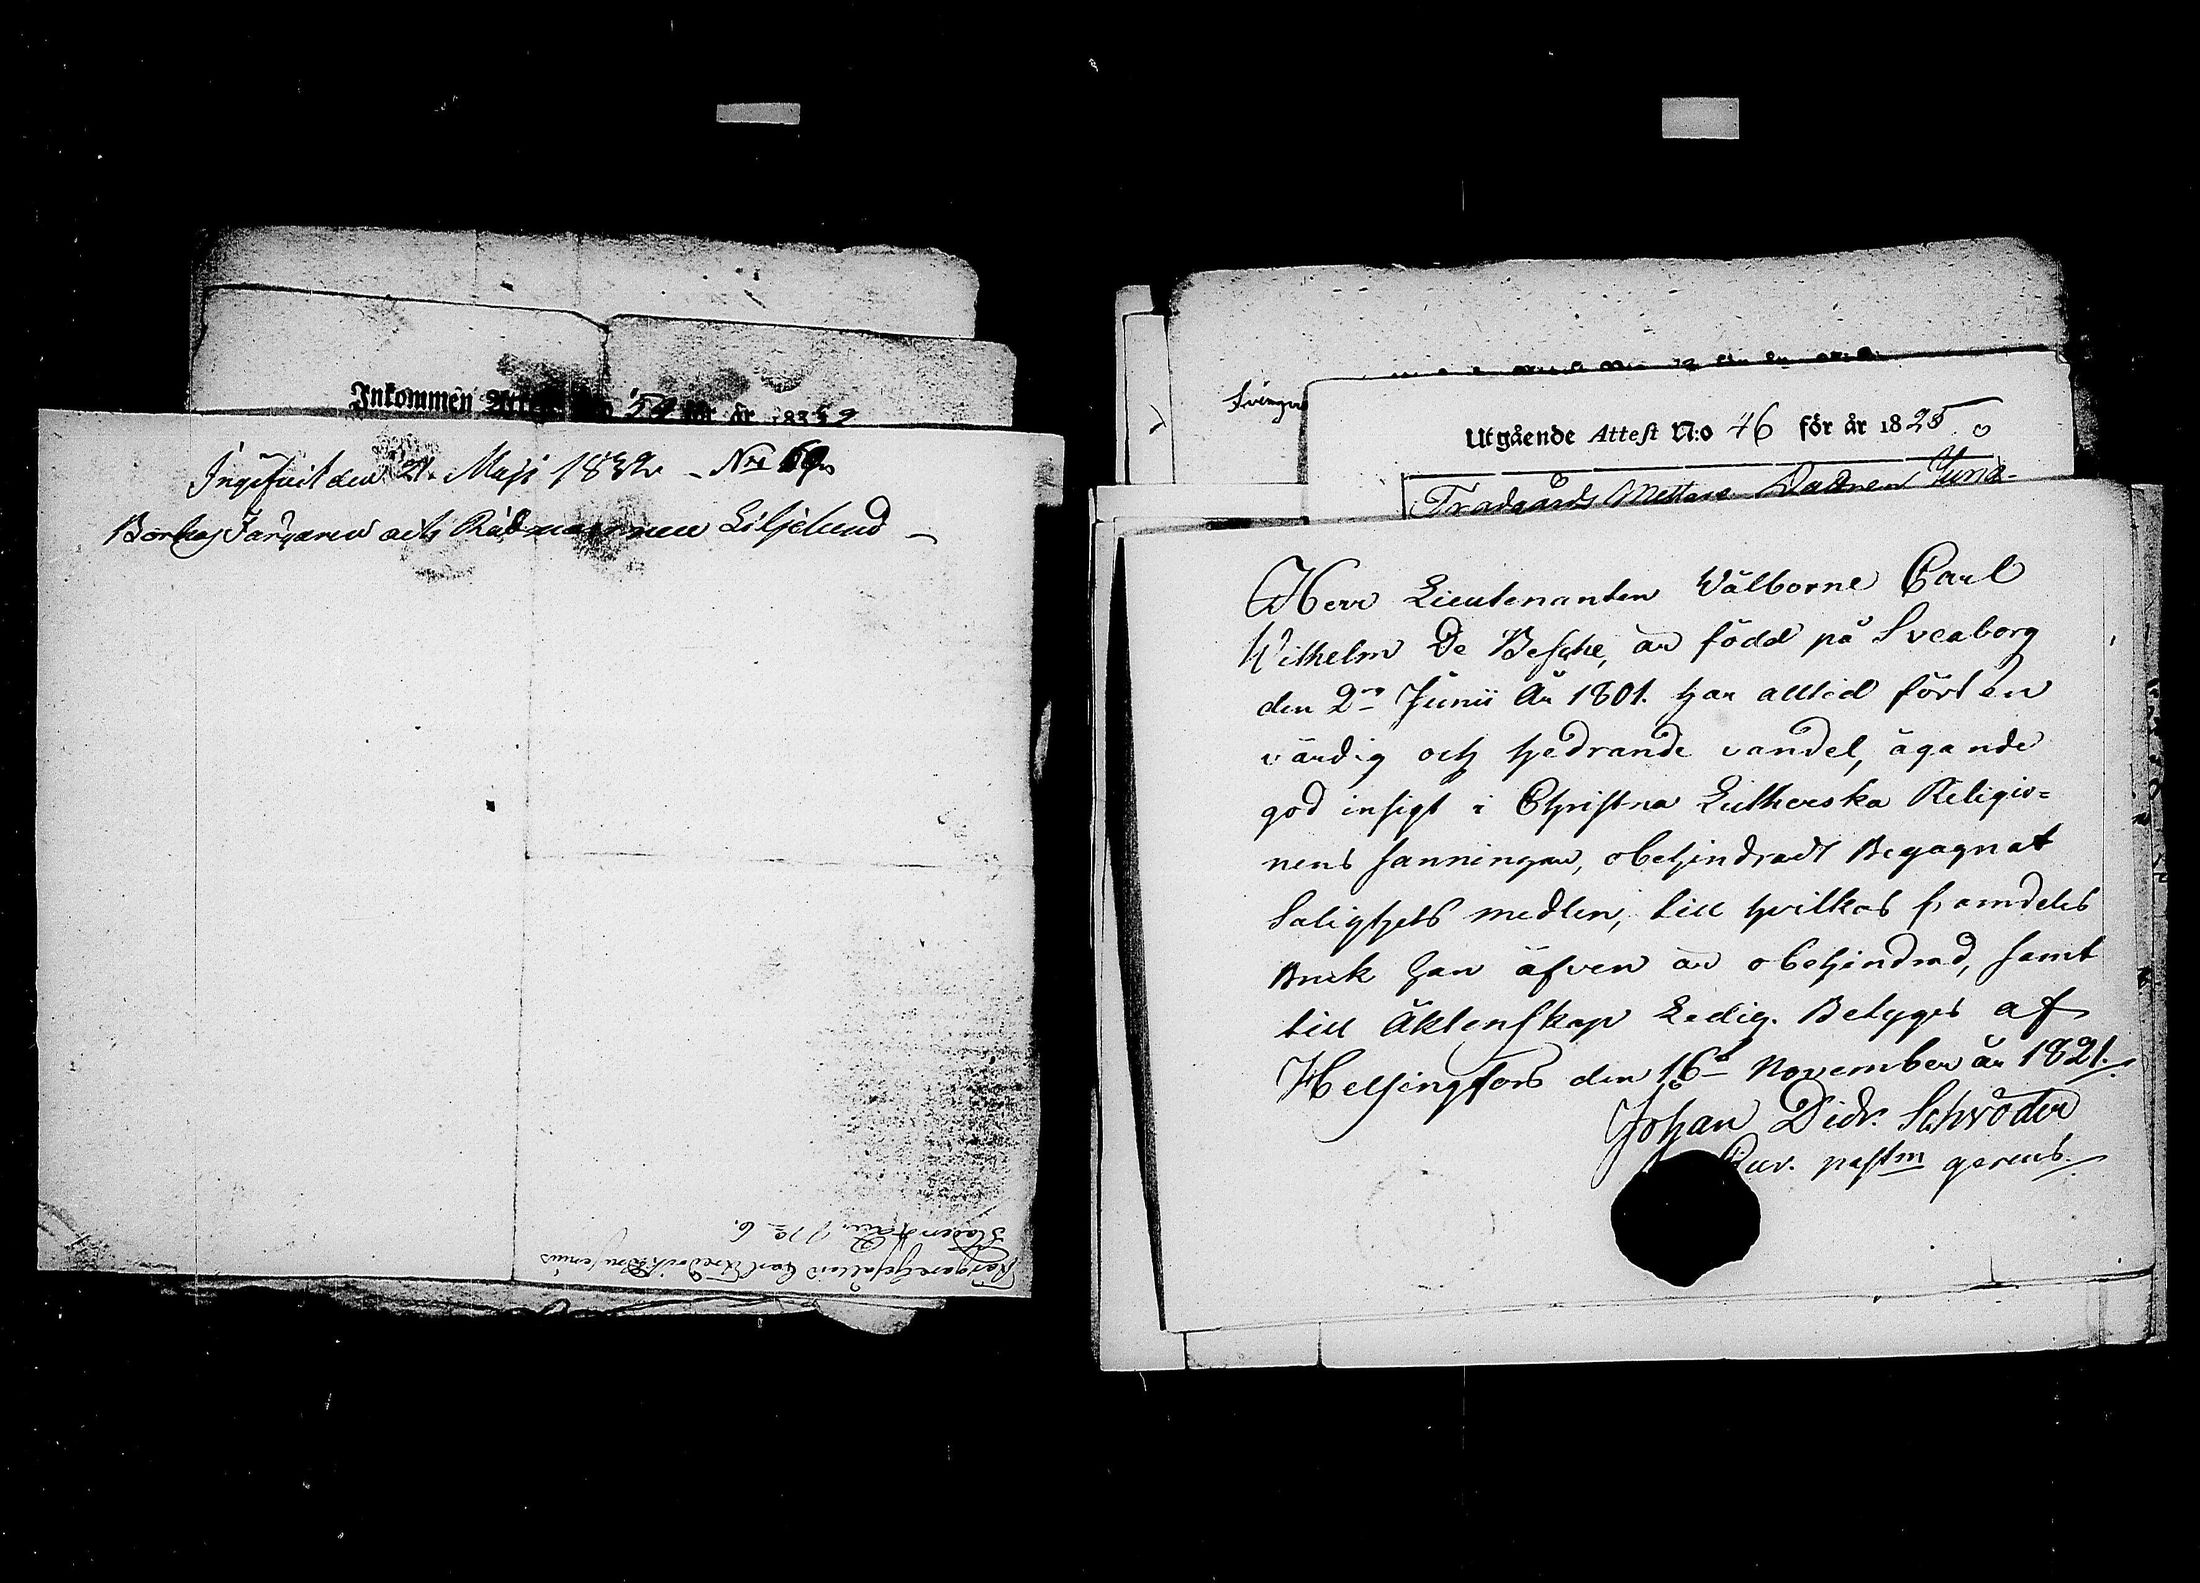 Inkommen Attest N:o 54 för år 1832
Ingifvit den 21 Maji 1832 - N:o 69
Borkaj Fargaren och Rådmannen Liljelund
Färgare Gesällen Carl Fredrik
N:o 6.
Utgående Attest N:o 46 för år 1825
Tradgårds Mettare
Herr Lieutenanten Välborne Carl
Wilhelm De Besche, är född på Sveaborg
den 2:n Junii År 1801. har alltid fört en
värdig och hedrande vandel, ägande
god insigt i Christna Lutherska Religio=
nens sanningar, obehindradt Begagnat
Salighets medlen, till hvilkas framdeles
Bruk han äfven är obehindrad, samt
till Äktenskap Ledig. Betygas af
Helsingfors den 16:d November år 1821.
Johan Didr. Schröder
Cur. past:m gerens.